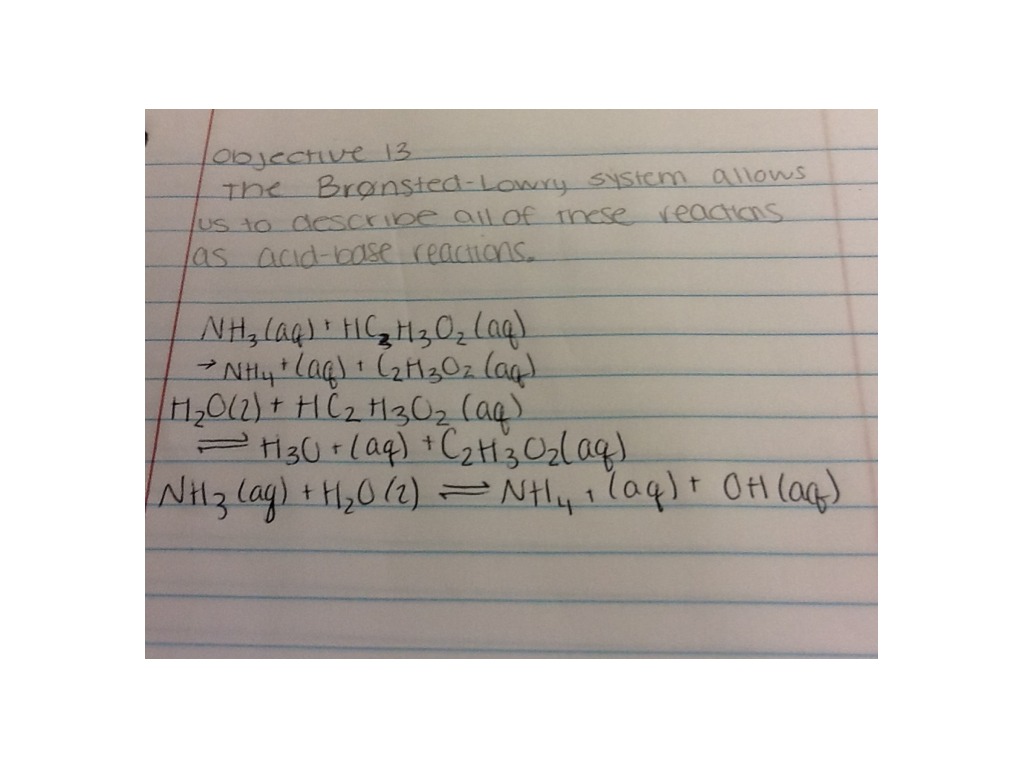 Objective 13
The Brønsted-Lowry system allows
us to describe all of these reactions
as acid-base reactions.
NH₃(aq) + HC₂H₃O₂(aq)
→ NH₄+(aq) + C₂H₃O₂(aq)
H₂O(2) + HC₂H₃O₂(aq)
⇌ H₃O+(aq) + C₂H₃O₂(aq)
NH₃(aq) + H₂O(2) ⇌ NH₄+(aq) + OH(aq)